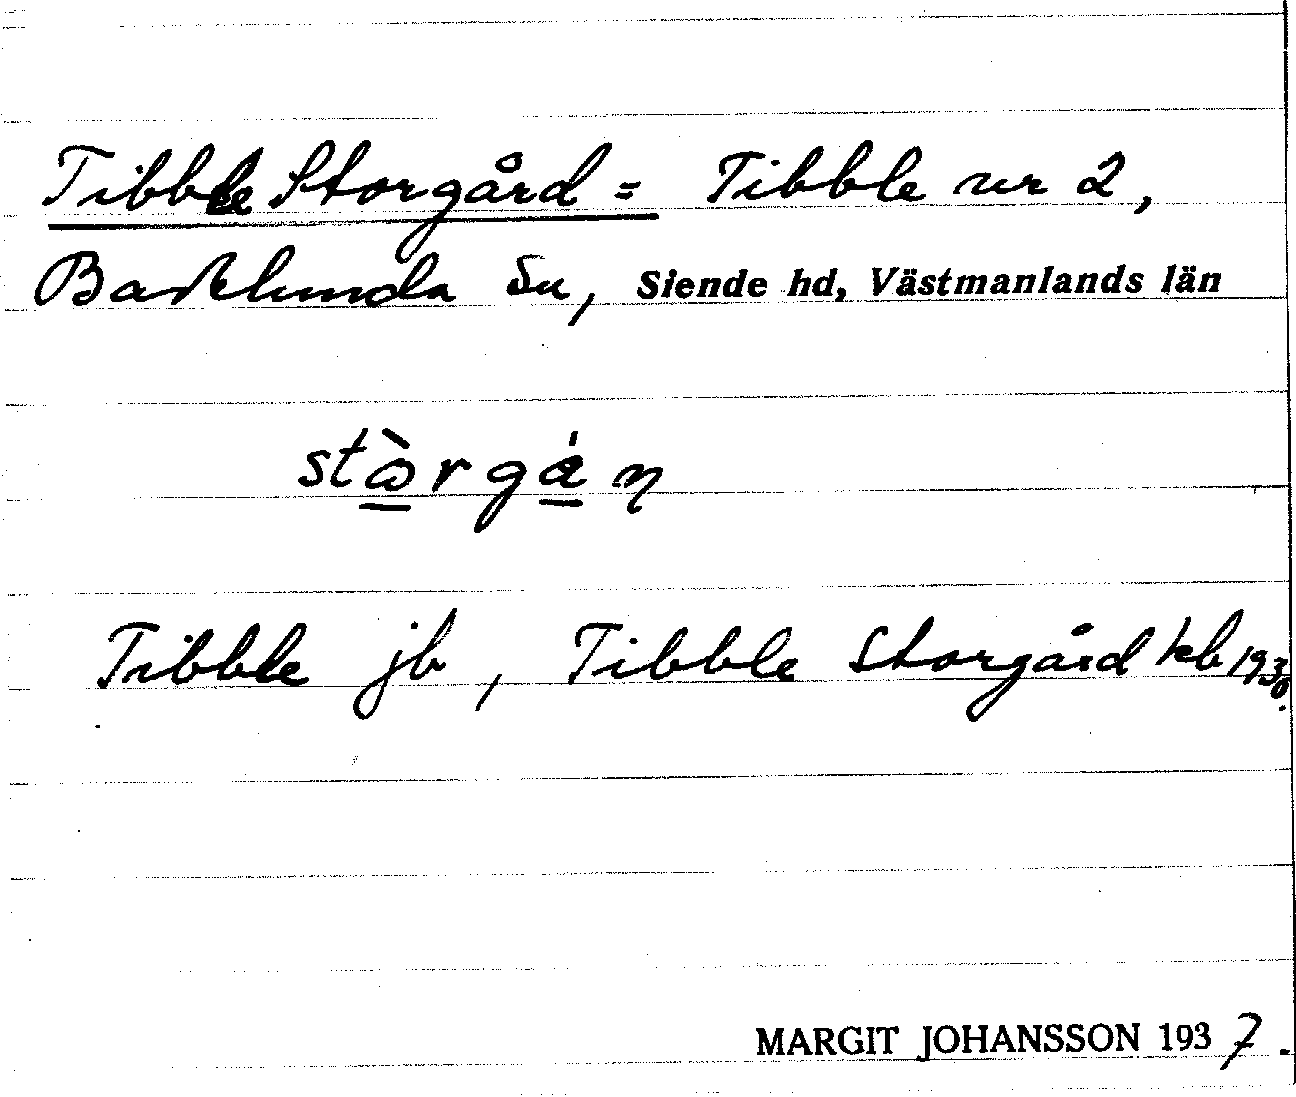 Tibble Storgård = Tibble nr 2,
Badelunda sn, Siende hd, Västmanlands län
stὼrgȧn
Tibble jb, Tibble Storgård kb 1930.
MARGIT JOHANSSON 1937.